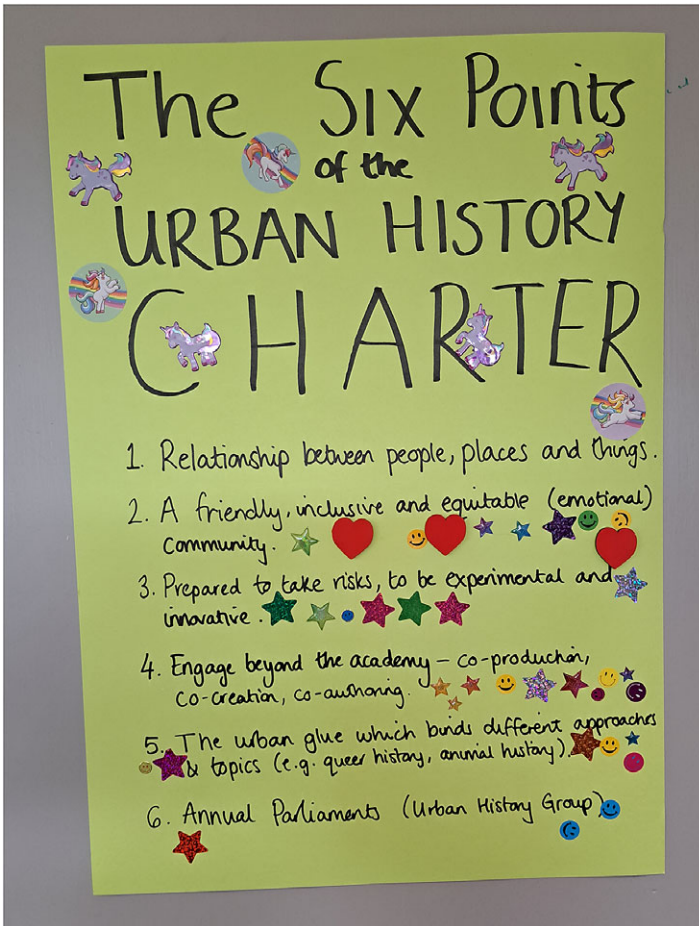 The Six Points
of the
URBAN HISTORY
CHARTER
1. Relationship between people, places and things.
2. A friendly, inclusive and equitable (emotional)
community.
3. Prepared to take risks, to be experimental and
innovative.
4. Engage beyond the academy – co-production,
co-creation, co-authoring.
5. The urban glue which binds different approaches
& topics (e.g. queer history, animal history).
6. Annual Parliaments (Urban History Group)